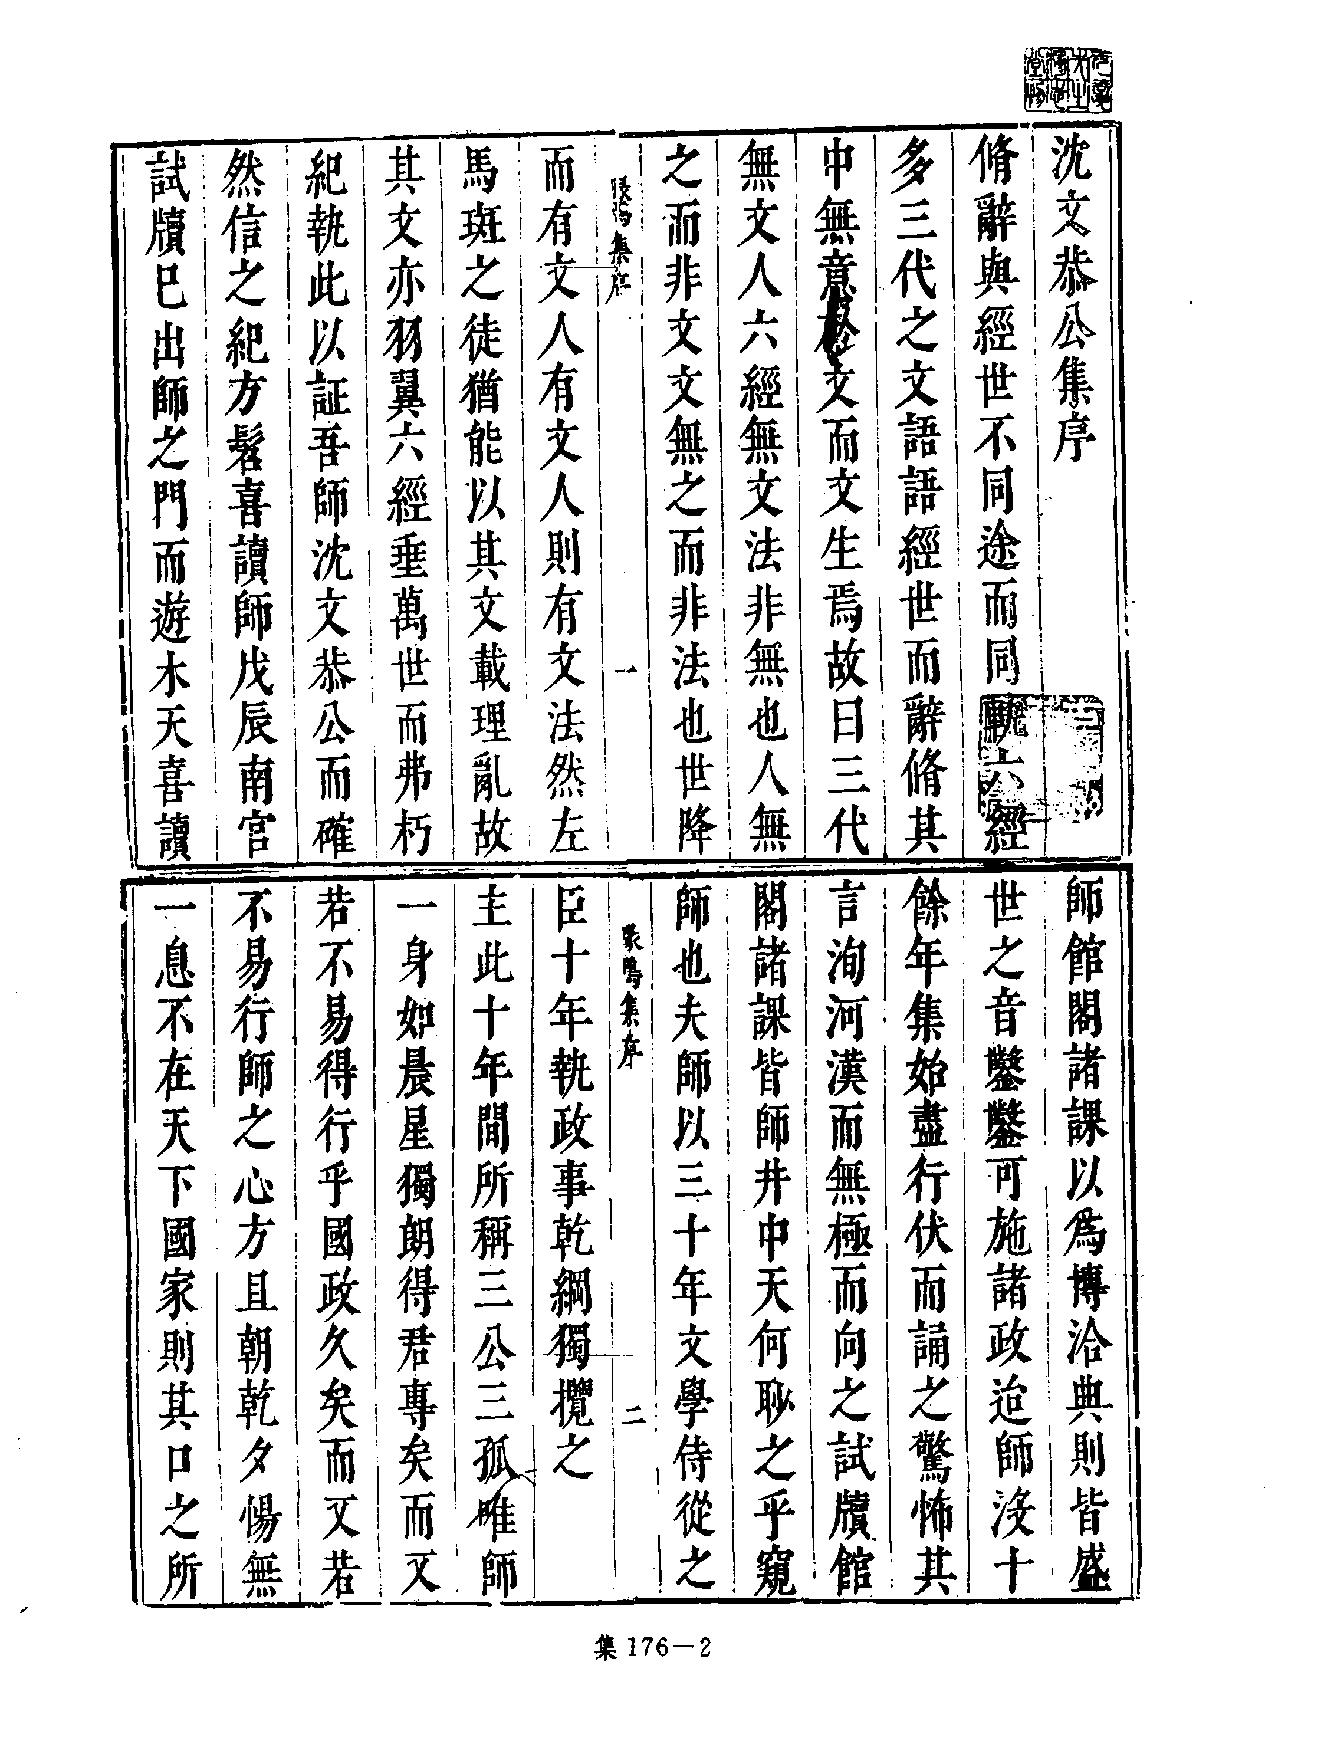 沈文恭公集序
脩辭與經世不同途而同六經
多三代之文語語經世而辭脩其
中無意於文而文生焉故曰三代
無文人六經無文法非無也人無
之而非文文無之而非法也世降
集序
一
而有文人有文人則有文法然左
馬斑之徒猶能以其文載理亂故
其文亦羽翼六經垂萬世而弗朽
紀執此以証吾師沈文恭公而確
然信之紀方髫喜讀師戊辰南宮
試牘巳出師之門而遊木天喜讀
師館閣諸課以為博洽典則皆盛
世之音鑿鑿可施諸政迨師沒十
餘年集始盡行伏而誦之驚怖其
言洵河漢而無極而向之試牘館
閣諸課皆師井中天何耿之乎窺
師也夫師以三十年文學侍從之
集序
二
臣十年執政事乾綱獨攬之
主此十年間所稱三公三孤唯師
一身如晨星獨朗得君專矣而又
若不易得行乎國政久矣而又若
不易行師之心方且朝乾夕惕無
一息不在天下國家則其口之所
集 176－2